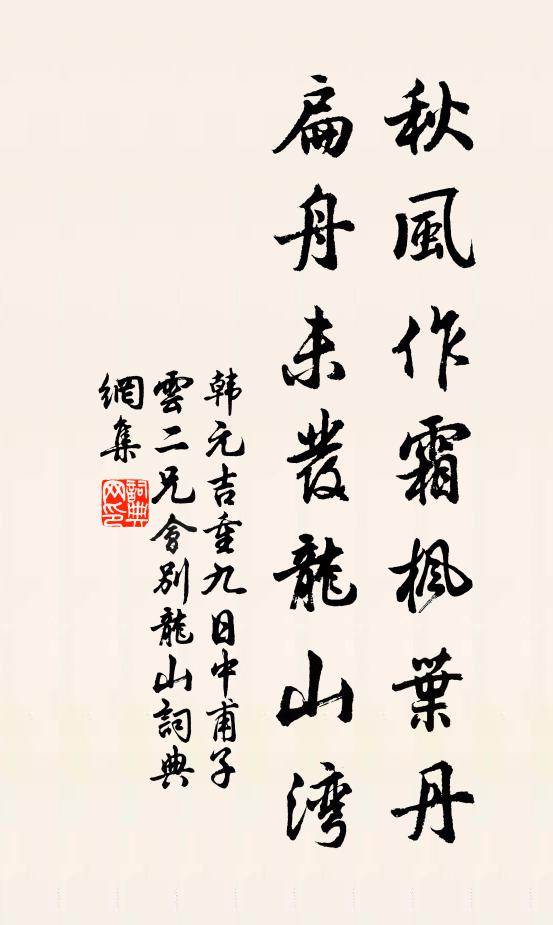 秋風作霜楓葉丹
扁舟未發龍山湾
韩元吉重九日中甫子
雲二兄會别龍山詞典
網集
詞典
网印